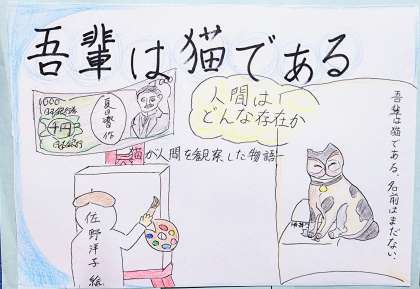 吾輩は猫である
1000
千円
夏目漱石作
人間は!
どんな存在か
一猫が人間を観察した物語一
佐野洋子絵
吾輩は猫である。名前はまだない。